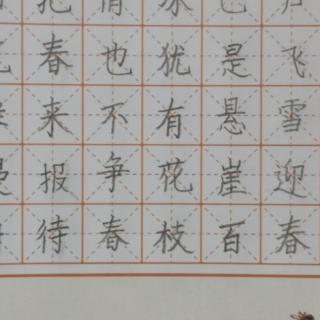 飞雪迎春
已是悬崖百
冰犹有花枝
俏也不争春
把春来报待